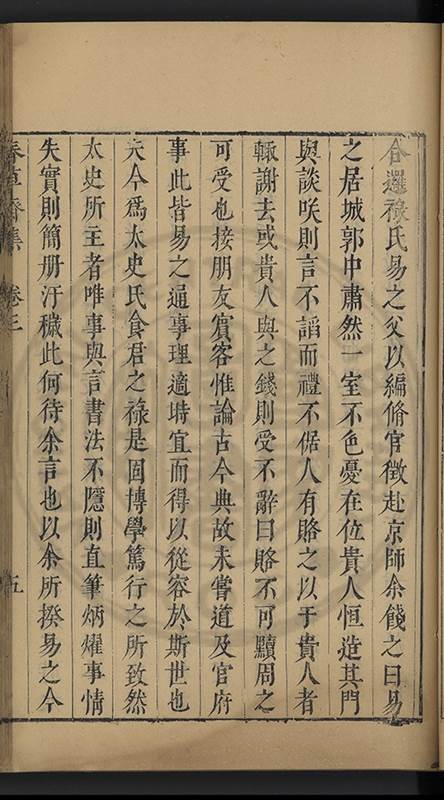 合邏祿氏易之父以編脩官徵赴京師余餞之曰易
之居城郭中肅然一室不色憂在位貴人恒造其門
與談咲則言不謟而禮不倨人有賂之以于貴人者
輙謝去或貴人與之錢則受不辭曰賂不可黷周之
可受也接朋友賓客惟論古今典故未嘗道及官府
事此皆易之逼事理適時宜而得以從容於斯世也
夫今爲太史氏食君之祿是固博學篤行之所致然
太史所主者唯事與言書法不隱則直筆炳燿事情
失實則簡册汙穢此何待余言也以余所揆易之今
春草齋集 卷三 五